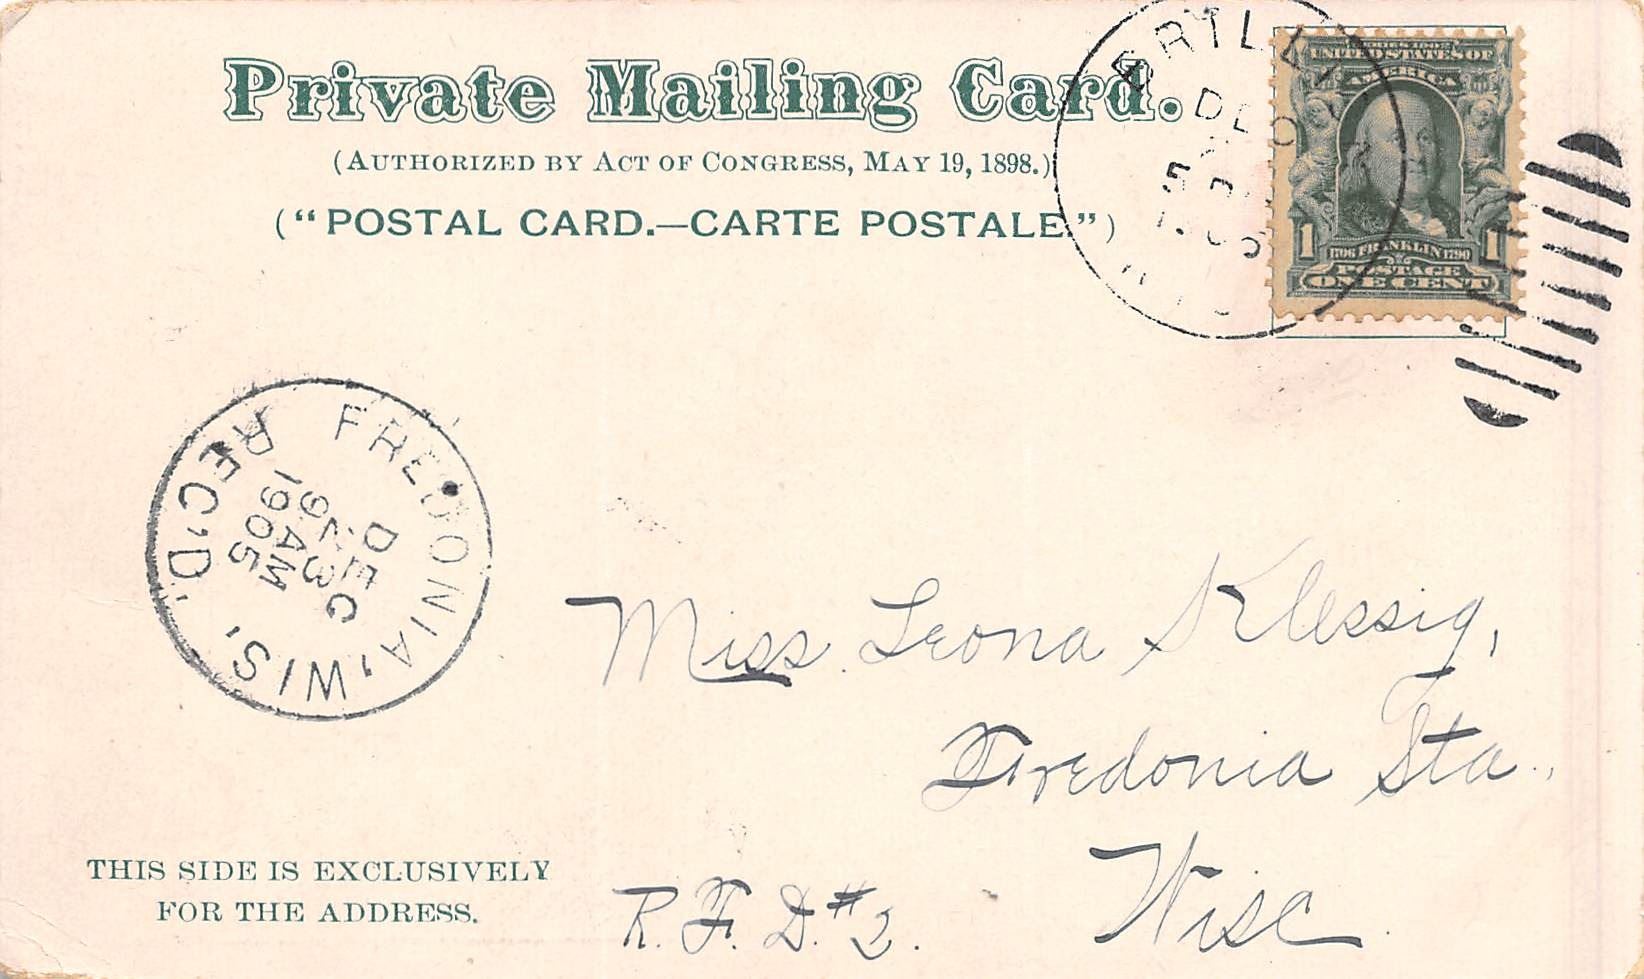 Private Mailing Card.
(AUTHORIZED BY ACT OF CONGRESS, MAY 19, 1898.)
("POSTAL CARD.—CARTE POSTALE")
UNITED STATES OF
AMERICA
1 1706 FRANKLIN 1790 1
POSTAGE
ONE CENT
FREDONIA, WIS.
REC'D.
DEC
23
9 AM
1905
Miss Leona Klessig,
Fredonia Sta.,
Wisc.
R. F. D. #2.
THIS SIDE IS EXCLUSIVELY
FOR THE ADDRESS.